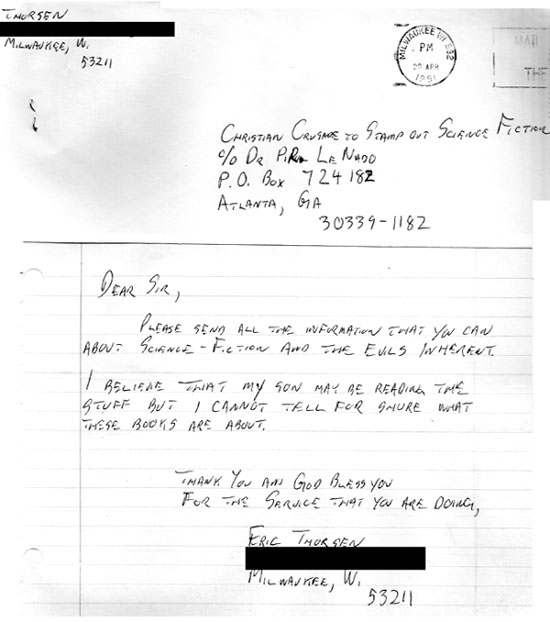 THORSEN
MILWAUKEE, W.
53211
MILWAUKEE WI 532
PM
20 APR
1991
MAIL
THE
CHRISTIAN CRUSADE TO STAMP OUT SCIENCE FICTION
c/o DR LE NADO
P.O. BOX 724182
ATLANTA, GA
30339-1182
DEAR SIR,
PLEASE SEND ALL THE INFORMATION THAT YOU CAN
ABOUT SCIENCE-FICTION AND THE EVILS INHERENT.
I BELIEVE THAT MY SON MAY BE READING THE
STUFF BUT I CANNOT TELL FOR SHURE WHAT
THESE BOOKS ARE ABOUT.
THANK YOU AN GOD BLESS YOU
FOR THE SERVICE THAT YOU ARE DOING,
ERIC THORSEN
MILWAUKEE, W.
53211